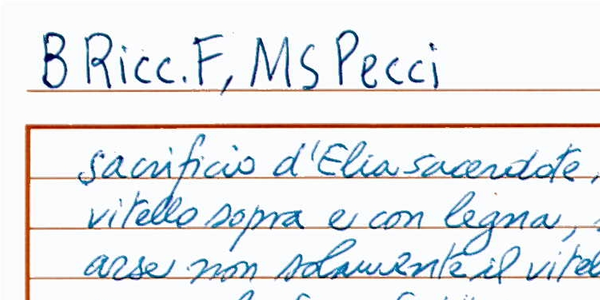 B Ricc. F, MS Pecci
sacrificio d'Elia sacerdote,
vitello sopra e con legna,
arse non solamente il vitel